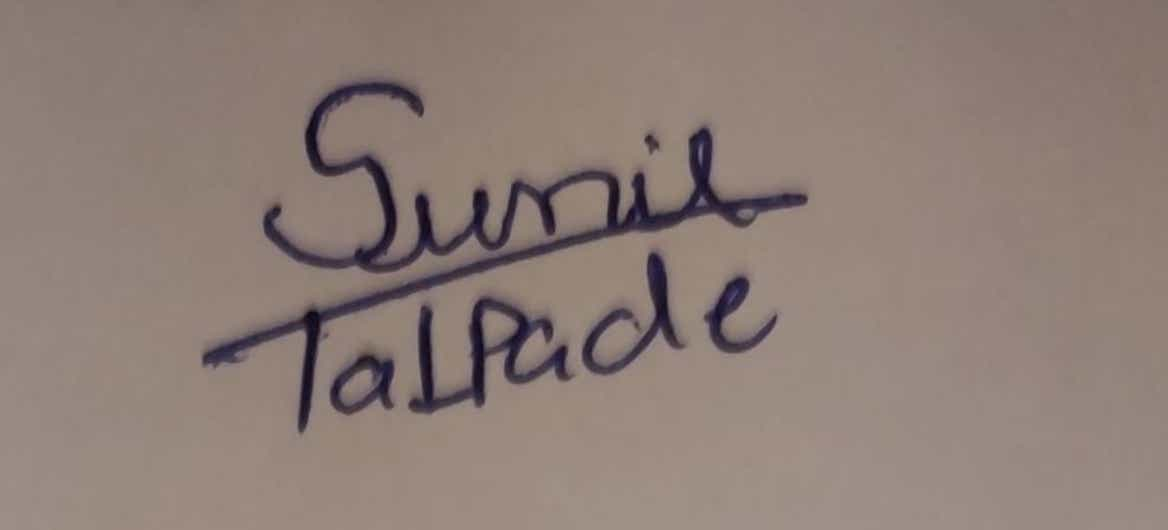 Sunil
TalPade